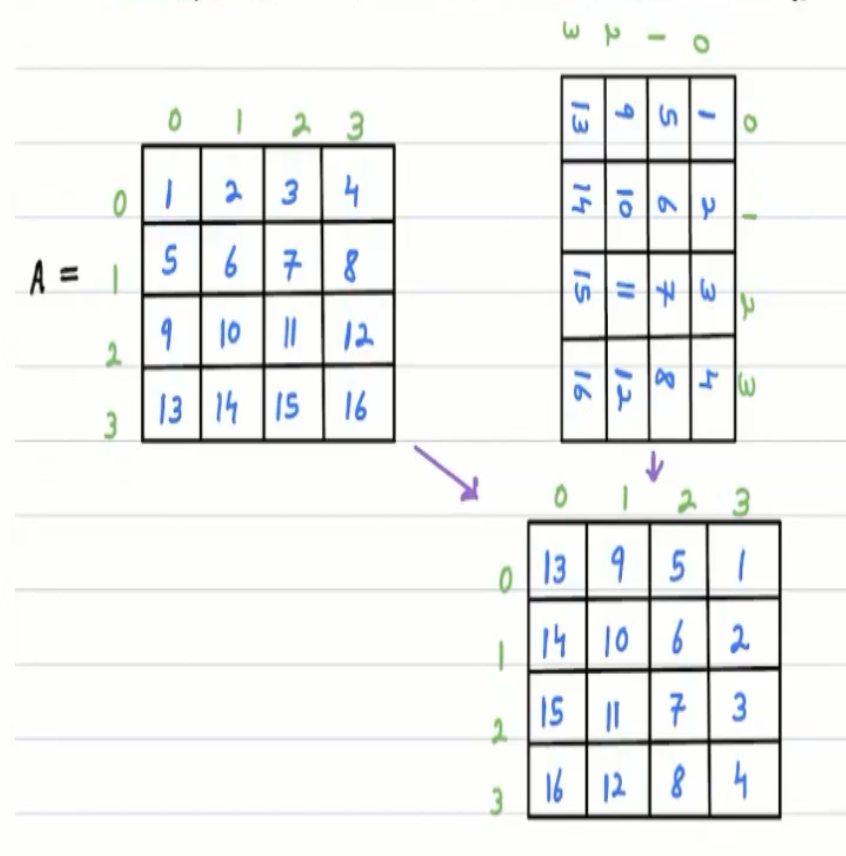 0 1 2 3
0 1 2 3 4
A = 1 5 6 7 8
2 9 10 11 12
3 13 14 15 16
3 2 1 0
13 9 5 1 0
14 10 6 2 1
15 11 7 3 2
16 12 8 4 3
0 1 2 3
0 13 9 5 1
1 14 10 6 2
2 15 11 7 3
3 16 12 8 4